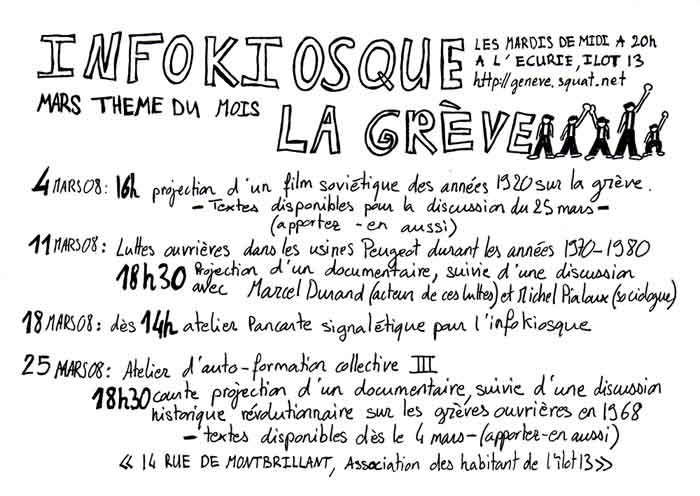 INFOKIOSQUE
LES MARDIS DE MIDI A 20h
A L'ECURIE, ILOT 13
http://geneve.squat.net
MARS THEME DU MOIS
LA GRÈVE
4 MARS08: 16h projection d'un film soviétique des années 1920 sur la grève.
- Textes disponibles pour la discussion du 25 mars -
(apportez-en aussi)
11 MARS08: Luttes ouvrières dans les usines Peugeot durant les années 1970-1980
18h30 Projection d'un documentaire, suivie d'une discussion
avec Marcel Durand (acteur de ces luttes) et Michel Pialoux (sociologue)
18 MARS08: dès 14h atelier Pancarte signalétique pour l'infokiosque
25 MARS08: Atelier d'auto-formation collective III
18h30 courte projection d'un documentaire, suivie d'une discussion
historique révolutionnaire sur les grèves ouvrières en 1968
- textes disponibles dès le 4 mars - (apportez-en aussi)
« 14 RUE DE MONTBRILLANT, Association des habitant de l'îlot 13 »